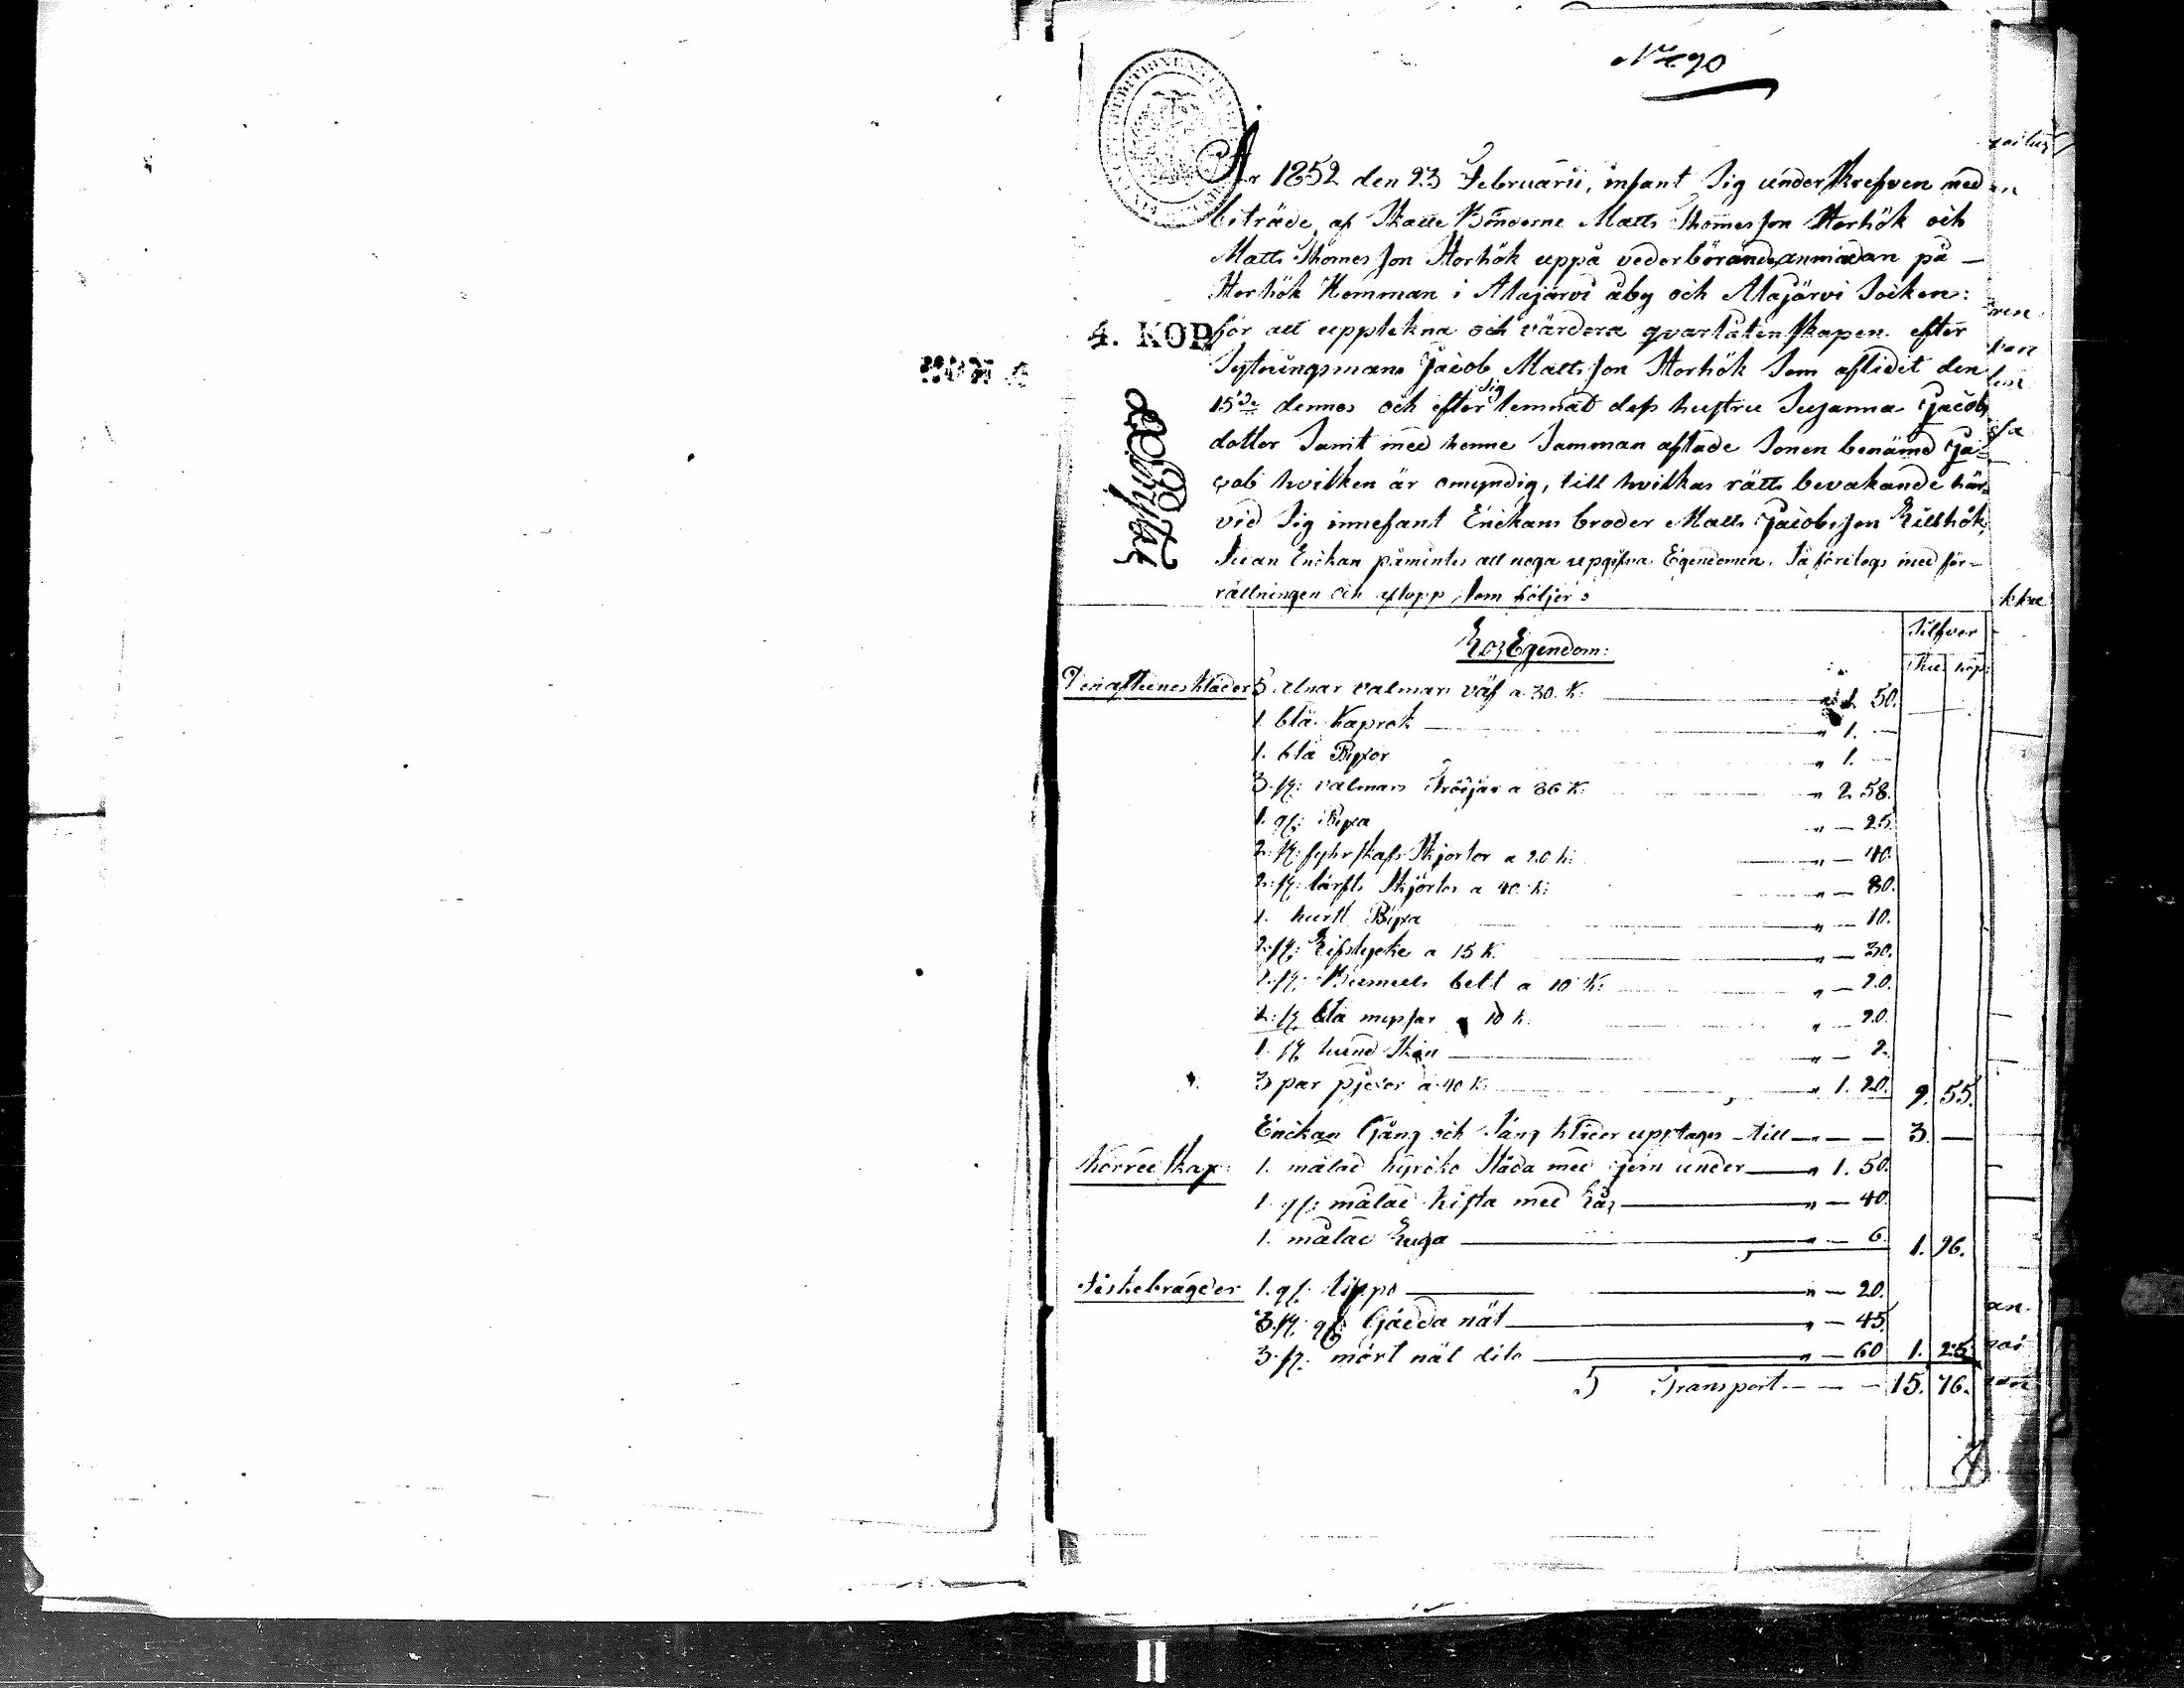 N:o 90
År 1852 den 23 Februarii, infant Sig underskrefven med
biträde af Skatte Bönderne Matts Thomesson Storhök och
Matts Thomesson Storhök uppå vederbörandes anmodan på
Storhök Hemman i Alajärvi åby och Alajärvi Socken:
4. KOP.
för att upptekna och värdera qvarlåtenskapen efter
Sytningsman Jacob Mattsson Storhök Som aflidit den
15de dennes och efter Sig lemnat dess hustru Susanna Jacobs
dotter Samt med henne Samman aflade Sonen benämd Ja-
cob hvilken är omyndig, till hvilkas rätts bevakande här-
vid Sig innefant Enckans broder Matts Jacobsson Lillhök,
Sedan Enckan påmintes att noga uppgifva Egendomen, Så företogs med för-
rättningen och aflopp, Som följer:
Silfver
Lös Egendom:
Ru kop:
Den aflednes kläder 5 alnar valmars väf a 30. K: " 1 50.
1. blå Kaprok " 1. —
1. blå Byxor " 1. —
3. st: valmars tröijar a 86 K: " 2 58.
1. gl: Byxa " — 25.
2: st: fyhrskafs Skjortor a 20 k: " — 40.
2: st: lärfts Skjörtor a 40 k: " — 80.
1. hurst Byxa " — 10.
2: st: Lifstycke a 15 K. " — 30.
2. st: Bumuls belt a 10 K: " — 20.
2: st. blå myssar a 10 k: " — 20.
1. st hund Skin " — 2.
3 par pjexor a 40 K: " 1. 20. 9. 55.
Enckan Gång och Säng kläder upptages till — — — 3. —
Körredskap: 1. målad kyrcko Släda med jern under " 1. 50.
1. gl: målad kista med Lås " — 40.
1. målad Luga " — 6. 1. 96.
Fiskebragder 1. gl: lippo " — 20.
3. st: gl: Gädda nät " — 45.
3. st: mört nät dito " — 60 1. 25.
Transport — — — 15. 76.